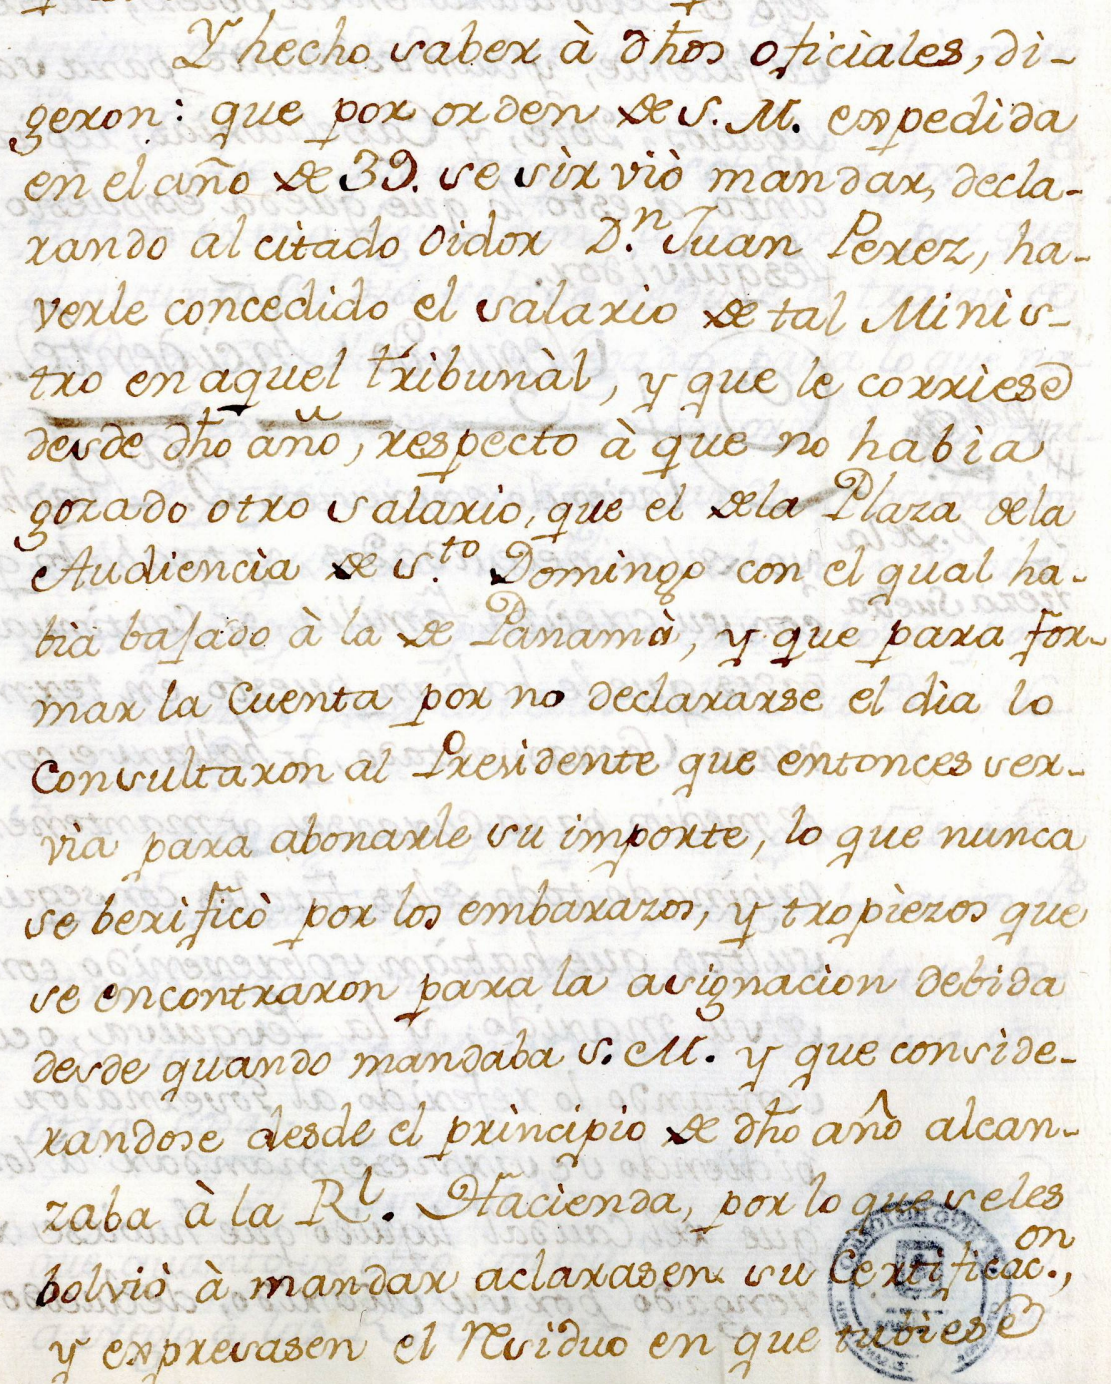 Y hecho saber à dhos oficiales, di-
geron: que por orden de S. M. expedida
en el año de 39. se sirviò mandar, decla-
rando al citado Oidor D.n Juan Perez, ha-
verle concedido el salario de tal Minis-
tro en aquel tribunàl, y que le corriese
desde dho año, respecto à que no habia
gozado otro salario, que el dela Plaza dela
Audiencia de S.to Domingo con el qual ha-
bia bajado à la de Panamà, y que para for-
mar la Cuenta por no declararse el dia lo
Consultaron al Presidente que entonces ser-
via para abonarle su importe, lo que nunca
se berificò por los embarazos, y tropiezos que
se encontraron para la asignacion debida
desde quando mandaba S. M. y que conside-
randose desde el principio de dho año alcan-
zaba à la Rl. Hacienda, por lo que seles
bolviò à mandar aclarasen su Certificac.on,
y expresasen el Residuo en que tubiese